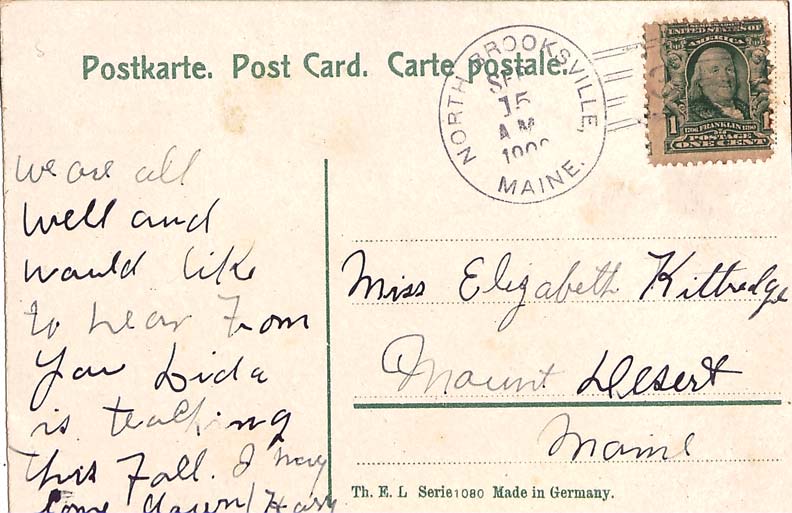 Postkarte. Post Card. Carte postale.
NORTH BROOKSVILLE,
SEP
15
A.M.
MAINE.
UNITED STATES OF
AMERICA
1 1706 FRANKLIN 1790 1
POSTAGE
ONE CENT
we are all
well and
would like
to hear from
you Lida
is teaching
this Fall. I may
come down
Miss Elizabeth Kittredge
Mount Desert
Maine
Th. E. L Serie 1080 Made in Germany.